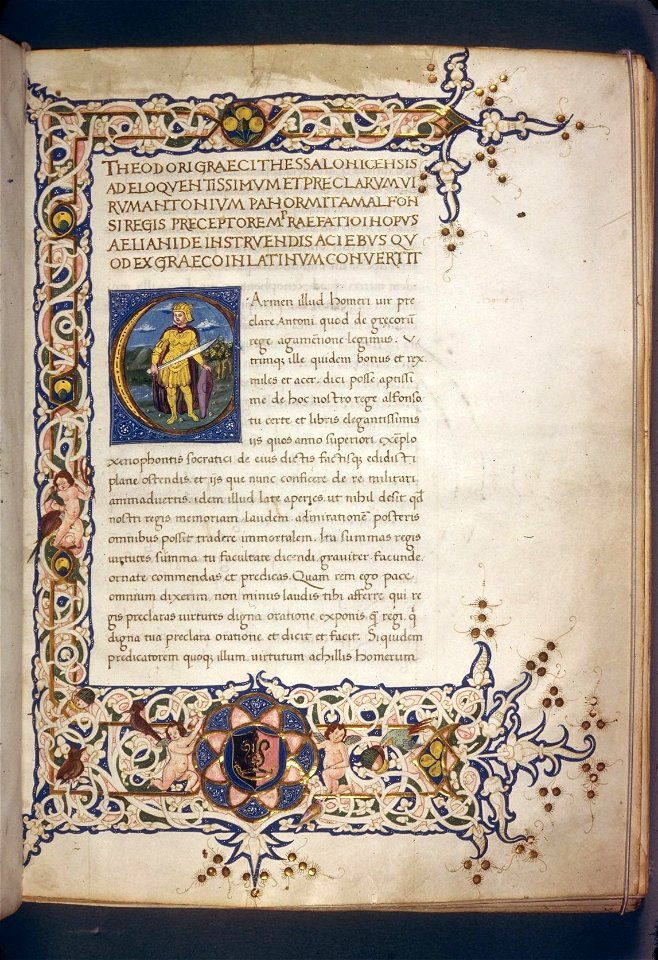 THEODORI GRAECI THESSALONICENSIS
AD ELOQVENTISSIMVM ET PRECLARVM VI
RVM ANTONIVM PANORMITAM ALFON
SI REGIS PRECEPTOREM PRAEFATIO IN OPVS
AELIANI DE INSTRVENDIS ACIEBVS QV
OD EX GRAECO IN LATINVM CONVERTIT
CArmen illud homeri uir pre
clare Antoni. quod de grecorũ
rege agamẽnone legimus. V
trimqꝫ ille quidem bonus et rex.
miles et acer. dici posse aptissi
me de hoc nostro rege alfonso.
tu certe et libris elegantissimis
ijs quos anno superiori exẽplo
xenophontis socratici de eius dictis factisqꝫ edidisti
plane ostendis. et ijs que nunc conficere de re militari
animaduertis. idem illud late aperies. ut nihil desit qđ
nostri regis memoriam laudem admirationẽ posteris
omnibus possit tradere immortalem. Ita summas regis
uirtutes sũma tu facultate dicendi. grauiter facunde.
ornate commendas et predicas. Quam rem ego pace
omnium dixerim non minus laudis tibi afferre qui re
gis preclaras uirtutes digna oratione exponis. q̃ regi. q̓
digna tua preclara oratione et dicit et facit. Siquidem
predicatorem quoqꝫ illum uirtutum achillis homerum